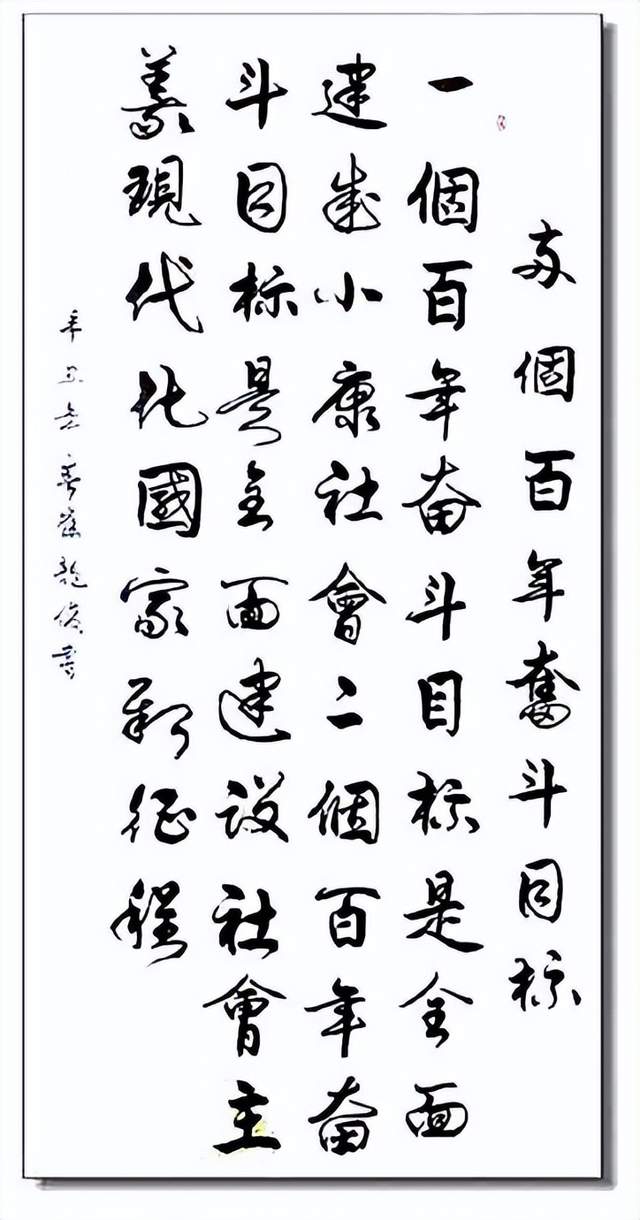 两個百年奮斗目标
一個百年奋斗目标是全面
建成小康社會二個百年奋
斗目标是全面建设社會主
義現代化國家新征程
辛丑之春崔龍俊書